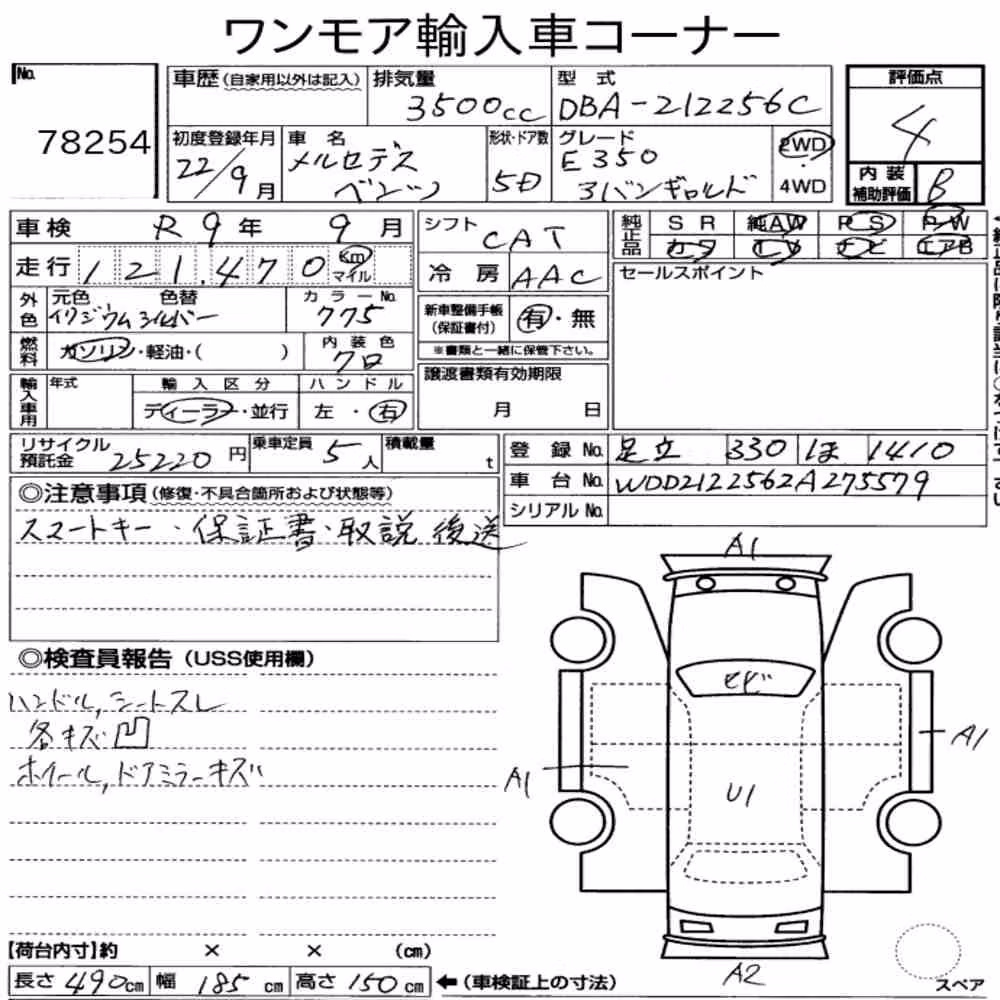 ワンモア輸入車コーナー
No. 車歴(自家用以外は記入) 排気量 型式 評価点
78254 3500cc DBA-212256C 4
初度登録年月 車名 形状・ドア数 グレード 2WD
22/9月 メルセデスベンツ 5D E350 ・4WD 内装補助評価 B
車検 R9年 9月 シフト CAT 純正品 SR 純AW PS PW
走行 121,470 Km マイル 冷房 AAC カワ TV ナビ エアB
外色 元色 色替 カラーNo. セールスポイント
イリジウムシルバー 775 新車整備手帳(保証書付) 有・無
燃料 ガソリン・軽油・( ) 内装色 クロ ※書類と一緒に保管下さい。
輸入車用 年式 輸入区分 ハンドル 譲渡書類有効期限
ディーラー・並行 左・右 月 日
リサイクル預託金 25220円 乗車定員 5人 積載量 t
登録No. 足立 330 ほ 1410
車台No. WDD2122562A275579
シリアルNo.
◎注意事項(修復・不具合箇所および状態等)
スマートキー・保証書・取説 後送
◎検査員報告(USS使用欄)
ハンドル,シートスレ
各キズ凹
ホイール,ドアミラーキズ
A1
A1
A1
U1
A2
スペア
【荷台内寸】約 × × (cm)
長さ490cm 幅185cm 高さ150cm ←(車検証上の寸法)